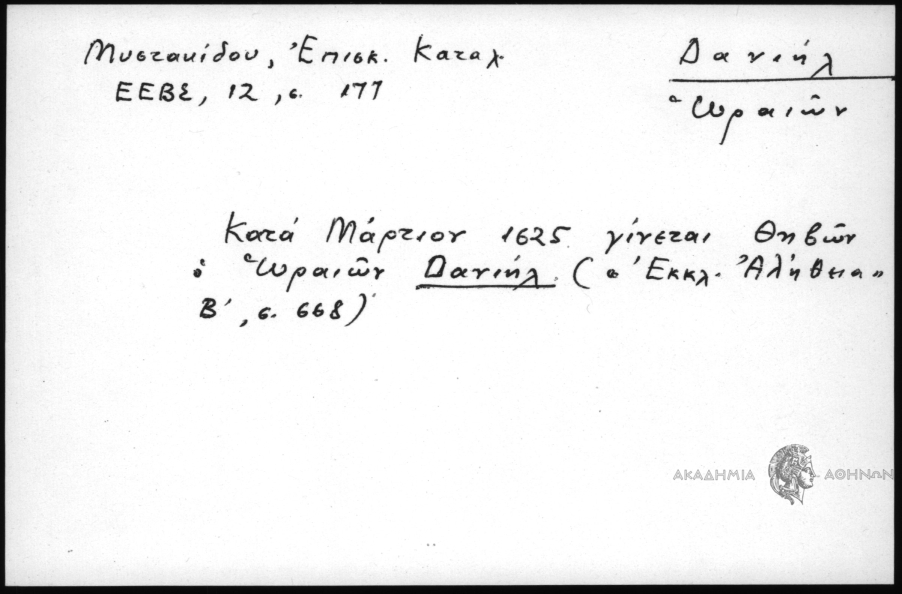 Μυστακίδου, Ἐπισκ. Καταλ.
ΕΕΒΣ, 12, σ. 177
Δανιήλ
Ὡραιῶν
Κατά Μάρτιον 1625 γίνεται Θηβῶν
ὁ Ὡραιῶν Δανιήλ. ("Ἐκκλ. Ἀλήθεια"
Β', σ. 668)
ΑΚΑΔΗΜΙΑ ΑΘΗΝΩΝ